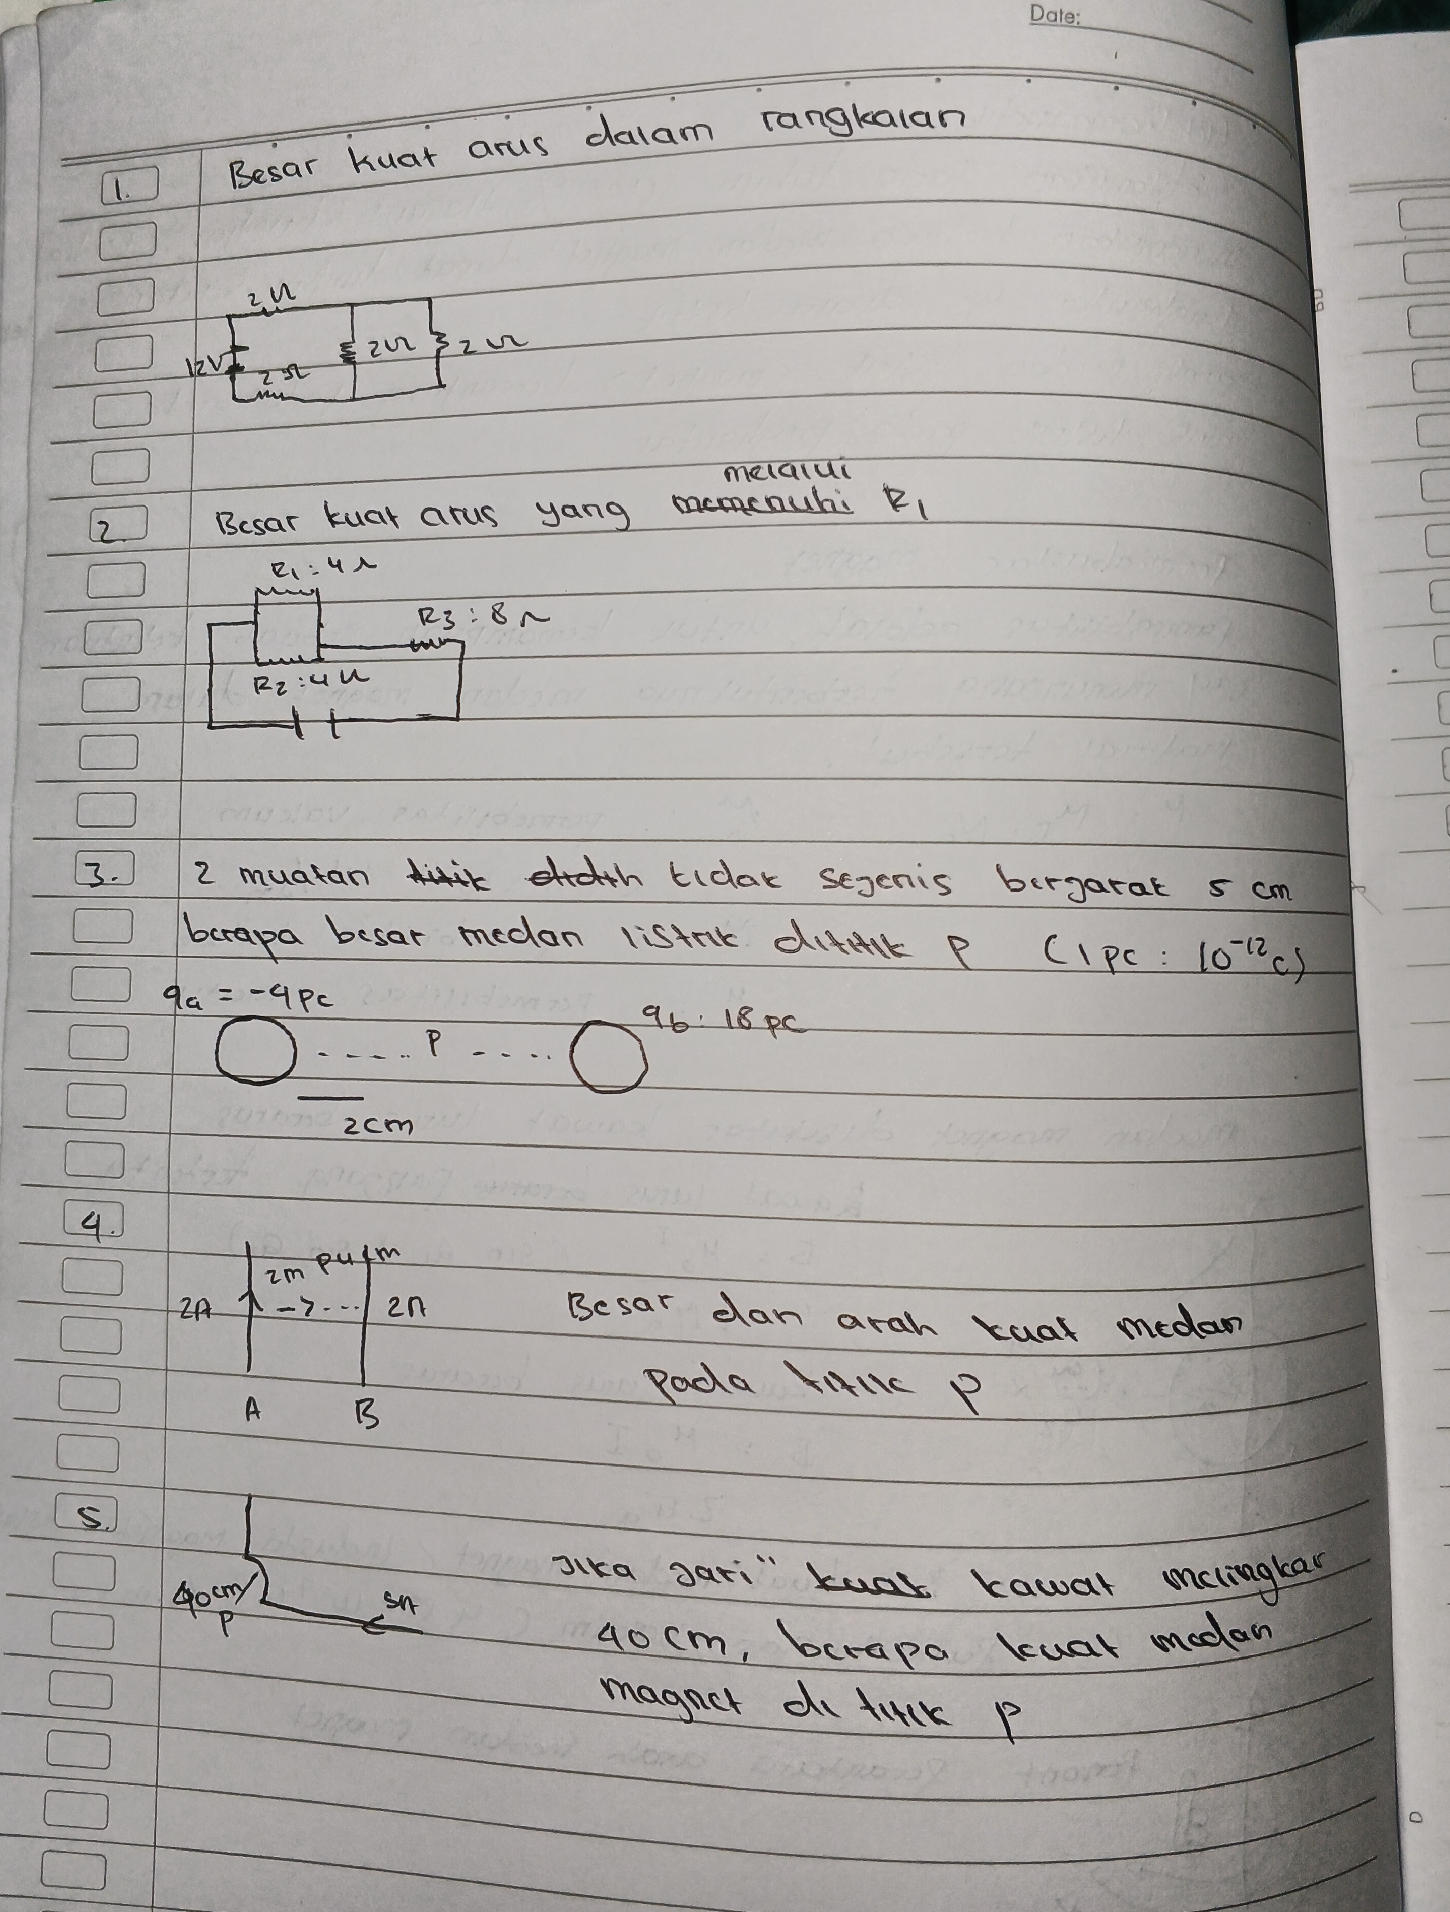 Date:
1. Besar kuat arus dalam rangkaian
2 Ω
12V
2 Ω
2 Ω
2 Ω
melalui
2. Besar kuat arus yang memenuhi R1
R1 : 4 Ω
R3 : 8 Ω
R2 : 4 Ω
3. 2 muatan titik tidak sejenis berjarak 5 cm
berapa besar medan listrik dititik P (1 pc : 10⁻¹² c)
qa = -4 pc
qb : 18 pc
P
2cm
4.
2m P 4 m
2A
2A
Besar dan arah kuat medan
pada titik p
A B
5.
Jika jari" kuat kawat melingkar
40cm
P
5A
40 cm, berapa kuat medan
magnet di titik p